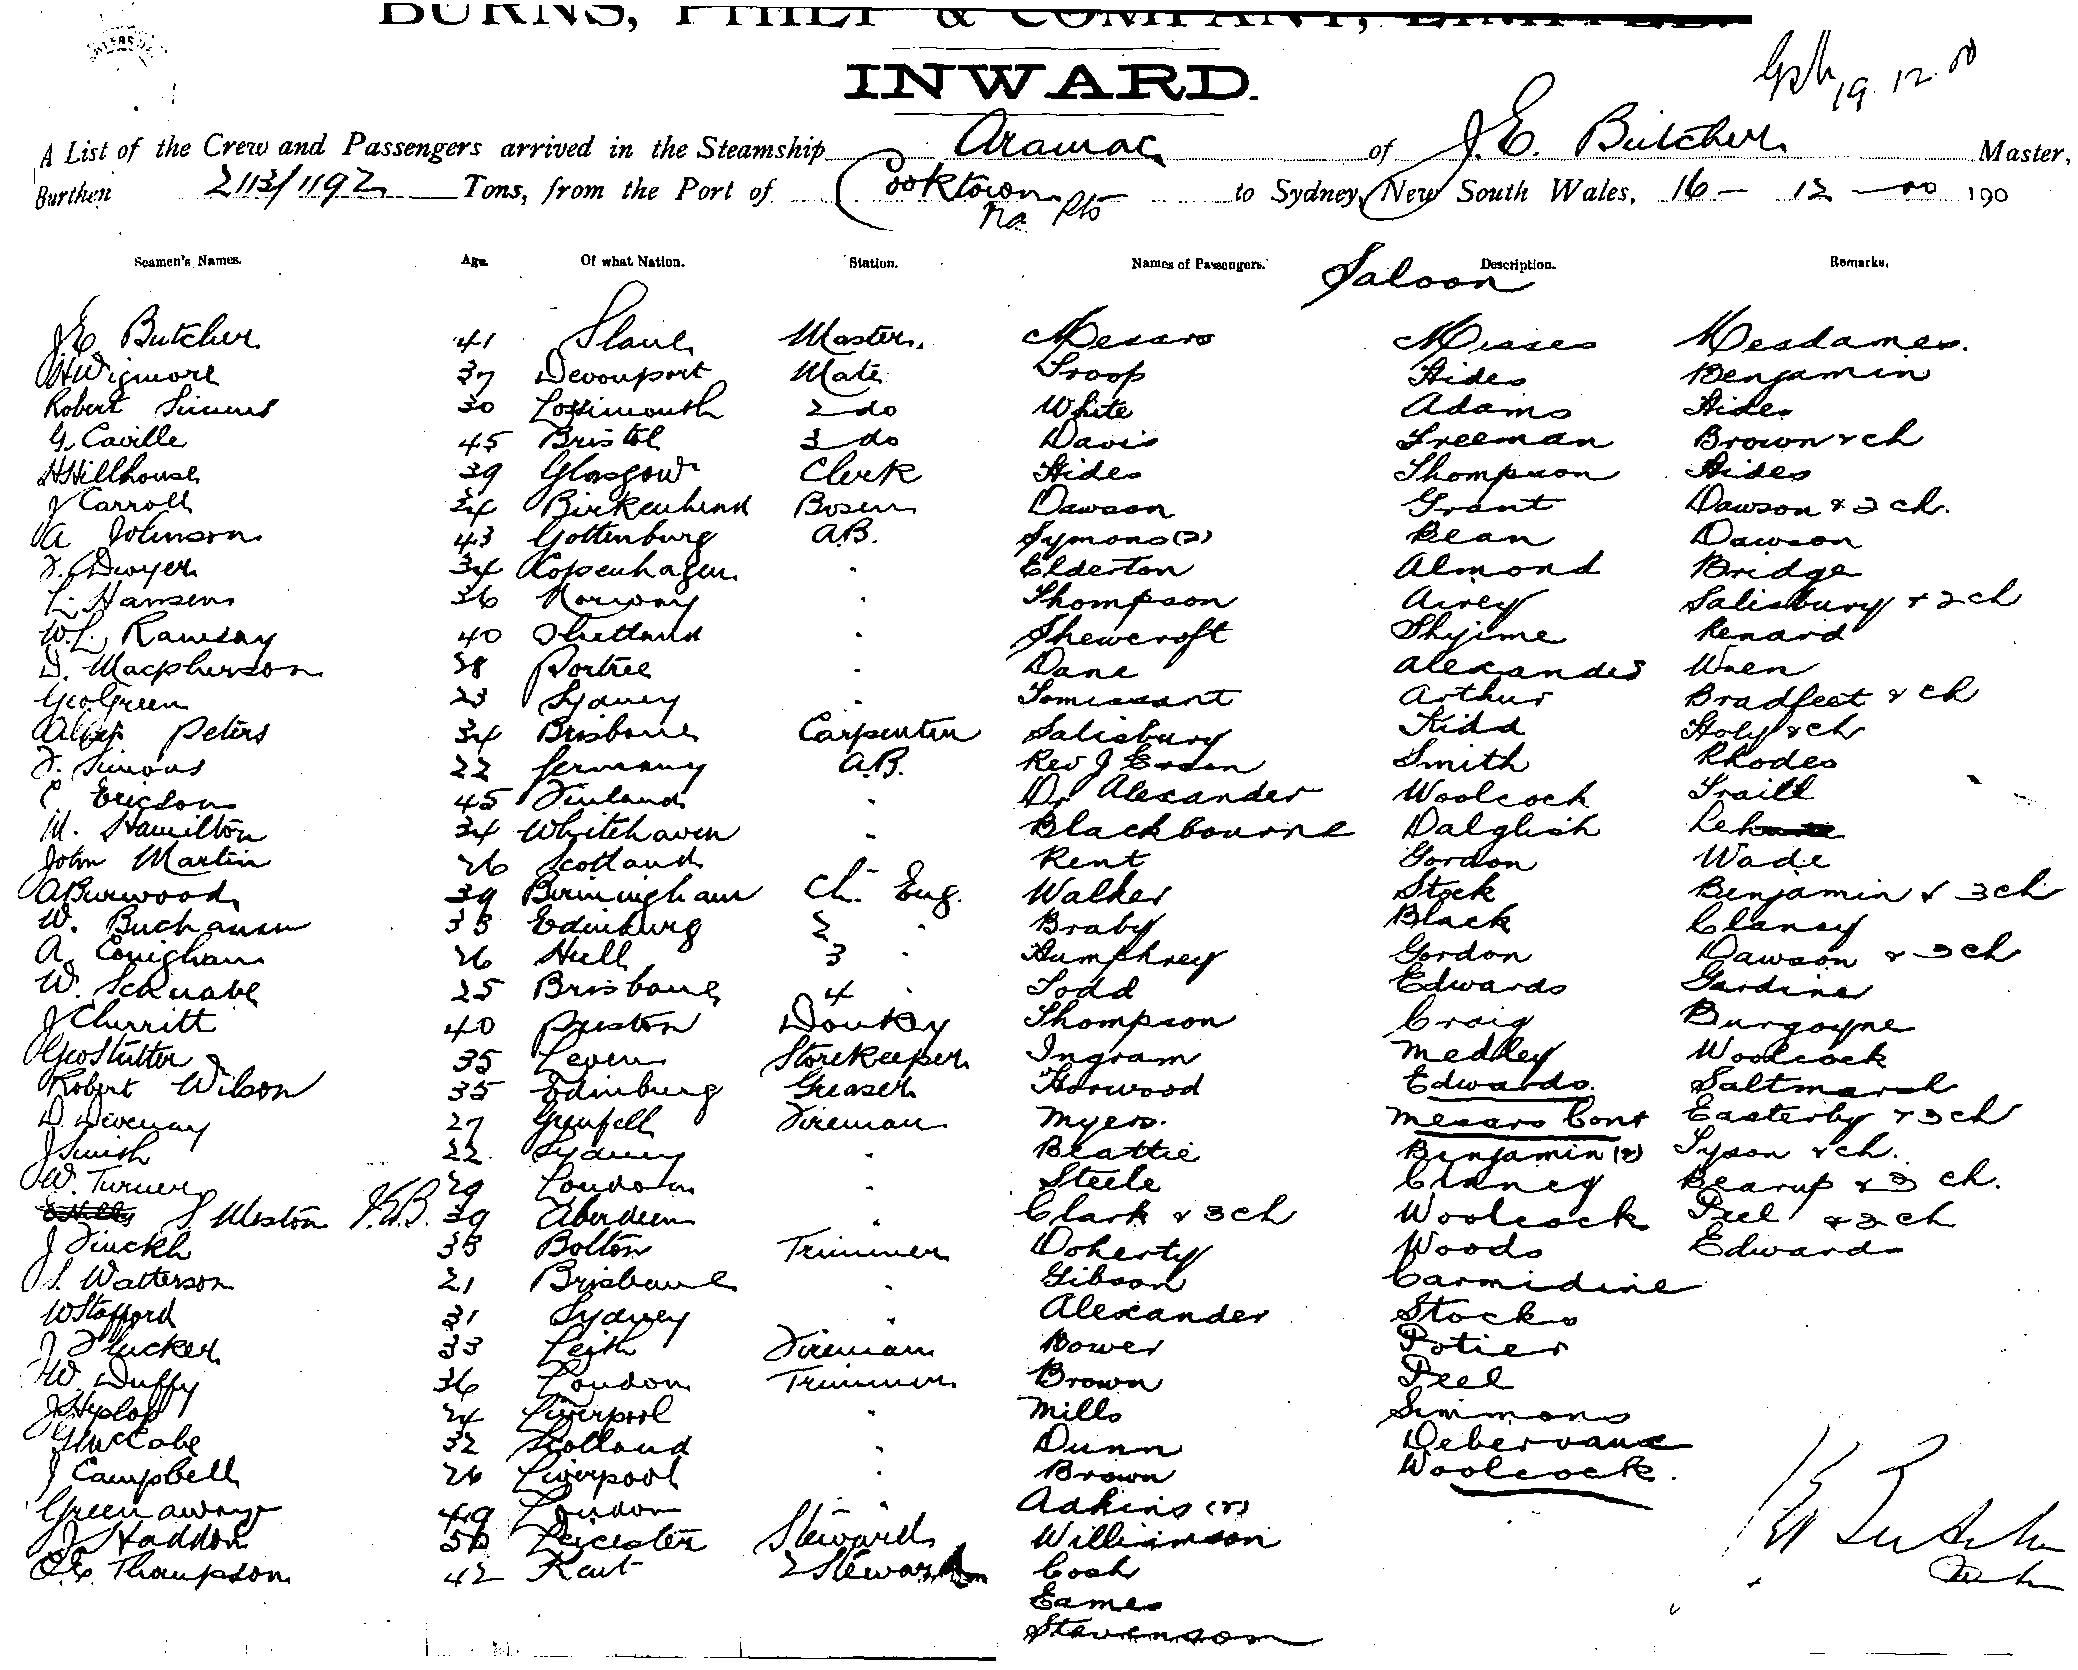 BURNS, PHILP & COMPANY, LIMITED.
INWARD.
19.12.00
A List of the Crew and Passengers arrived in the Steamship Aramac of J.E. Butcher Master,
Burthen 2113/1192 Tons, from the Port of Cooktown to Sydney, New South Wales, 16 - 12 - 00 190
na Pts
Seamen's Names. Age. Of what Nation. Station. Names of Passengers. Description. Remarks.
Saloon
J E Butcher 41 Master Messrs Misses Mesdames.
H Wigmore 37 Devonport Mate Troop Hides Benjamin
Robert Simms 30 Lossimouth 2 do White Adams Hides
G Caville 45 Bristol 3 do Davis Freeman Brown & ch
H Hillhouse 39 Glasgow Clerk Hides Thompson Hides
J Carroll 24 Birkenhead Bosun Dawson Grant Dawson & 2 ch.
A Johnson 43 Gottenburg A.B. Symons (2) Bean Dawson
F. Dwyer 34 Copenhagen " Elderton Almond Bridge
L. Hansen 36 Norway " Thompson Airey Salisbury & 2 ch
W.L. Ramsay 40 Shetland " Shewcroft Renard
D. Macpherson 38 Portree " Dane Alexander Wren
Geo Green 23 Sydney " Arthur Bradfeet & ch
Peters 34 Brisbane Carpenter Salisbury Kidd Holy & ch
F. Simons 22 Germany A.B. Rev J Smith Rhodes
C Ericson 45 Finland " Dr Alexander Woolcock Traill
M. Hamilton 34 Whitehaven " Blackbourne Dalglish
John Martin 26 Scotland Kent Gordon Wade
A Burwood 39 Birmingham Ch. Eng. Walker Stock Benjamin & 3 ch
W. Buchanan 33 Edinburg 2 " Braby Black Clancy
A. Conigham 26 Hull 3 " Humphrey Gordon Dawson & 3 ch
W. Schnabel 25 Brisbane 4 " Todd Edwards Gardine
J Churritt 40 Preston Donkey Thompson Craig Burgoyne
Geo Stutter 35 Leven Storekeeper Ingram Medley Woolcock
Robert Wilson 35 Edinburg Greaser Horwood Edwards. Saltmarsh
D. Diveney 27 Fireman Myers. Messrs Cont Easterby & 3 ch
J Smish 22 Sydney " Beattie Benjamin (2) Tyson & ch.
W. Turner 29 London " Steele Clancey Bearup & 3 ch.
S Weston 39 Aberdeen " Clark & 3 ch Woolcock Peel & 2 ch
J 33 Bolton Trimmer Doherty Woods Edwards
S. Watterson 21 Brisbane " Gibson Carmidine
W Stafford 31 Sydney " Alexander Stocks
J Flucker 33 Leith Fireman Bower Potier
W. Duffy 36 London Trimmer Brown Peel
J Hyslop 24 Liverpool " Mills Simmons
G McCabe 32 Scotland " Dunn
J Campbell 26 Liverpool " Brown Woolcock.
Greenaway 49 London " Adkins (2)
J Haddon 50 Leicester Steward Williamson
C.E. Thompson 42 Kent 2 Steward Cosh
Eames
Stevenson